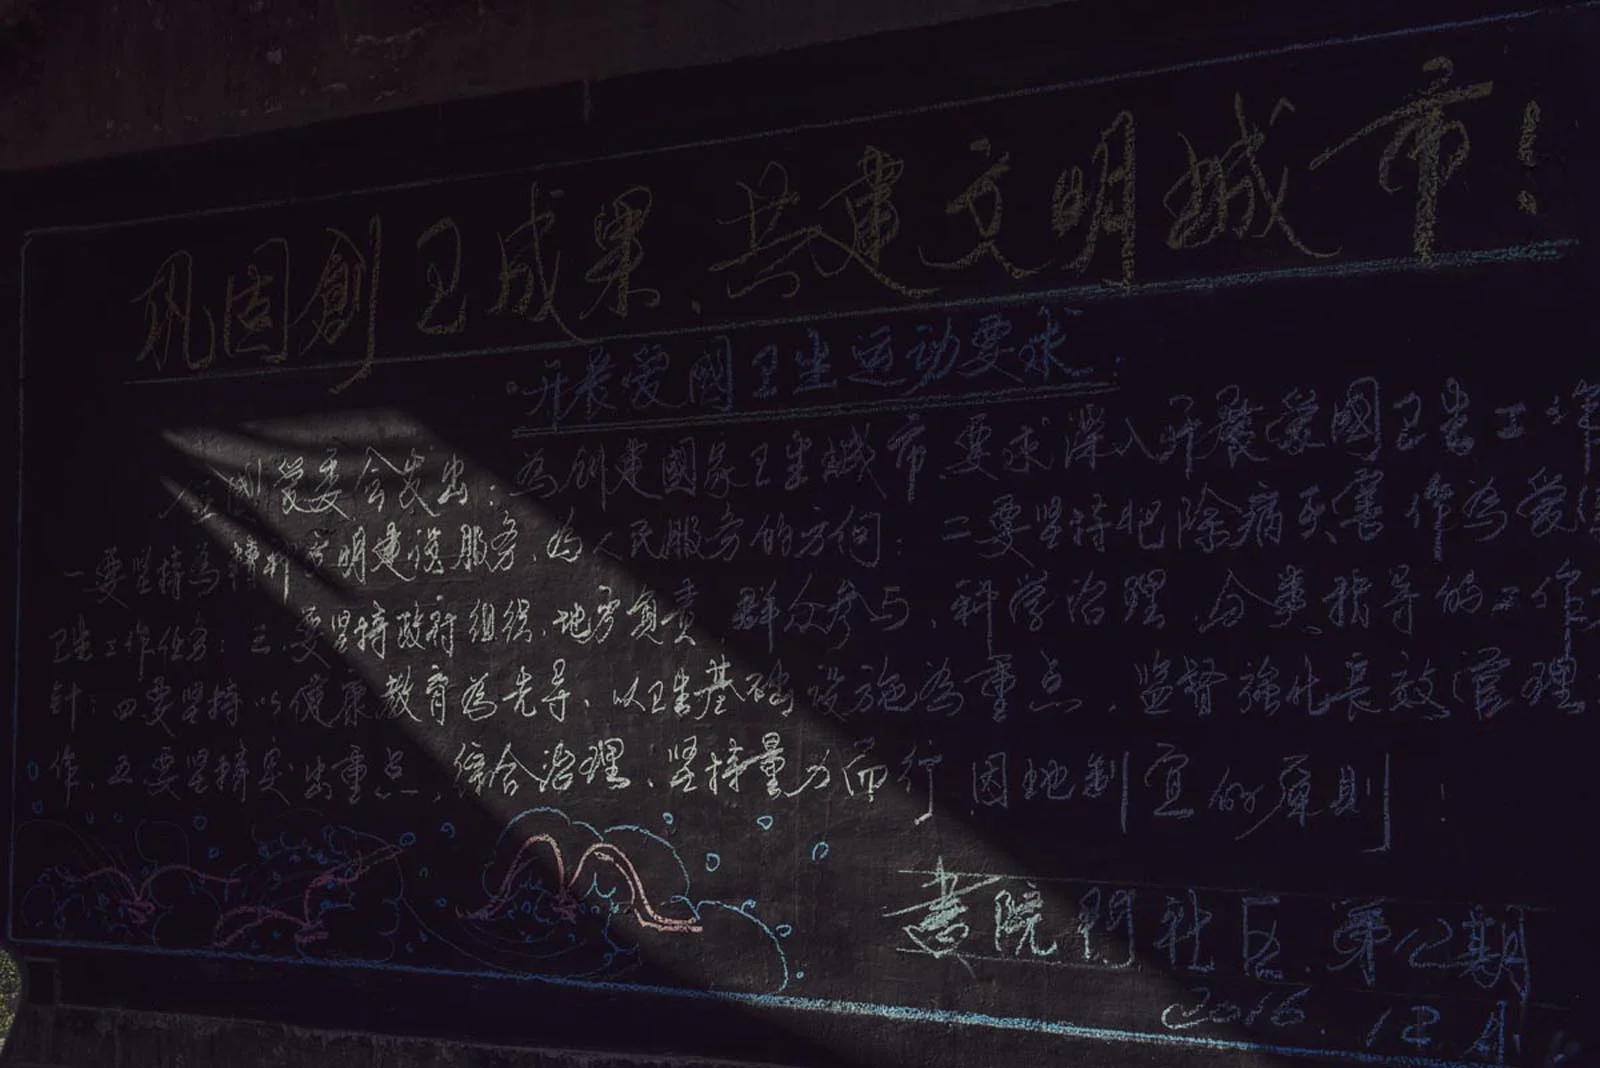 巩固創卫成果、共建文明城市！
开展爱国卫生运动要求：
全国爱委会发出：为创建國家卫生城市要求深入开展爱国卫生工作
一要坚持为精神文明建设服务，为人民服务的方向：二要坚持把除病灭害作为爱国
卫生工作任务：三.要坚持政府组织、地方负责、群众参与、科学治理、分类指导的工作方
针：四要坚持以健康教育為先导、以卫生基础设施為重点、监督強化長效管理
作、五要坚持突出重点、综合治理、坚持量力而行因地制宜的原则！
書院門社区 第12期
2016.12月.